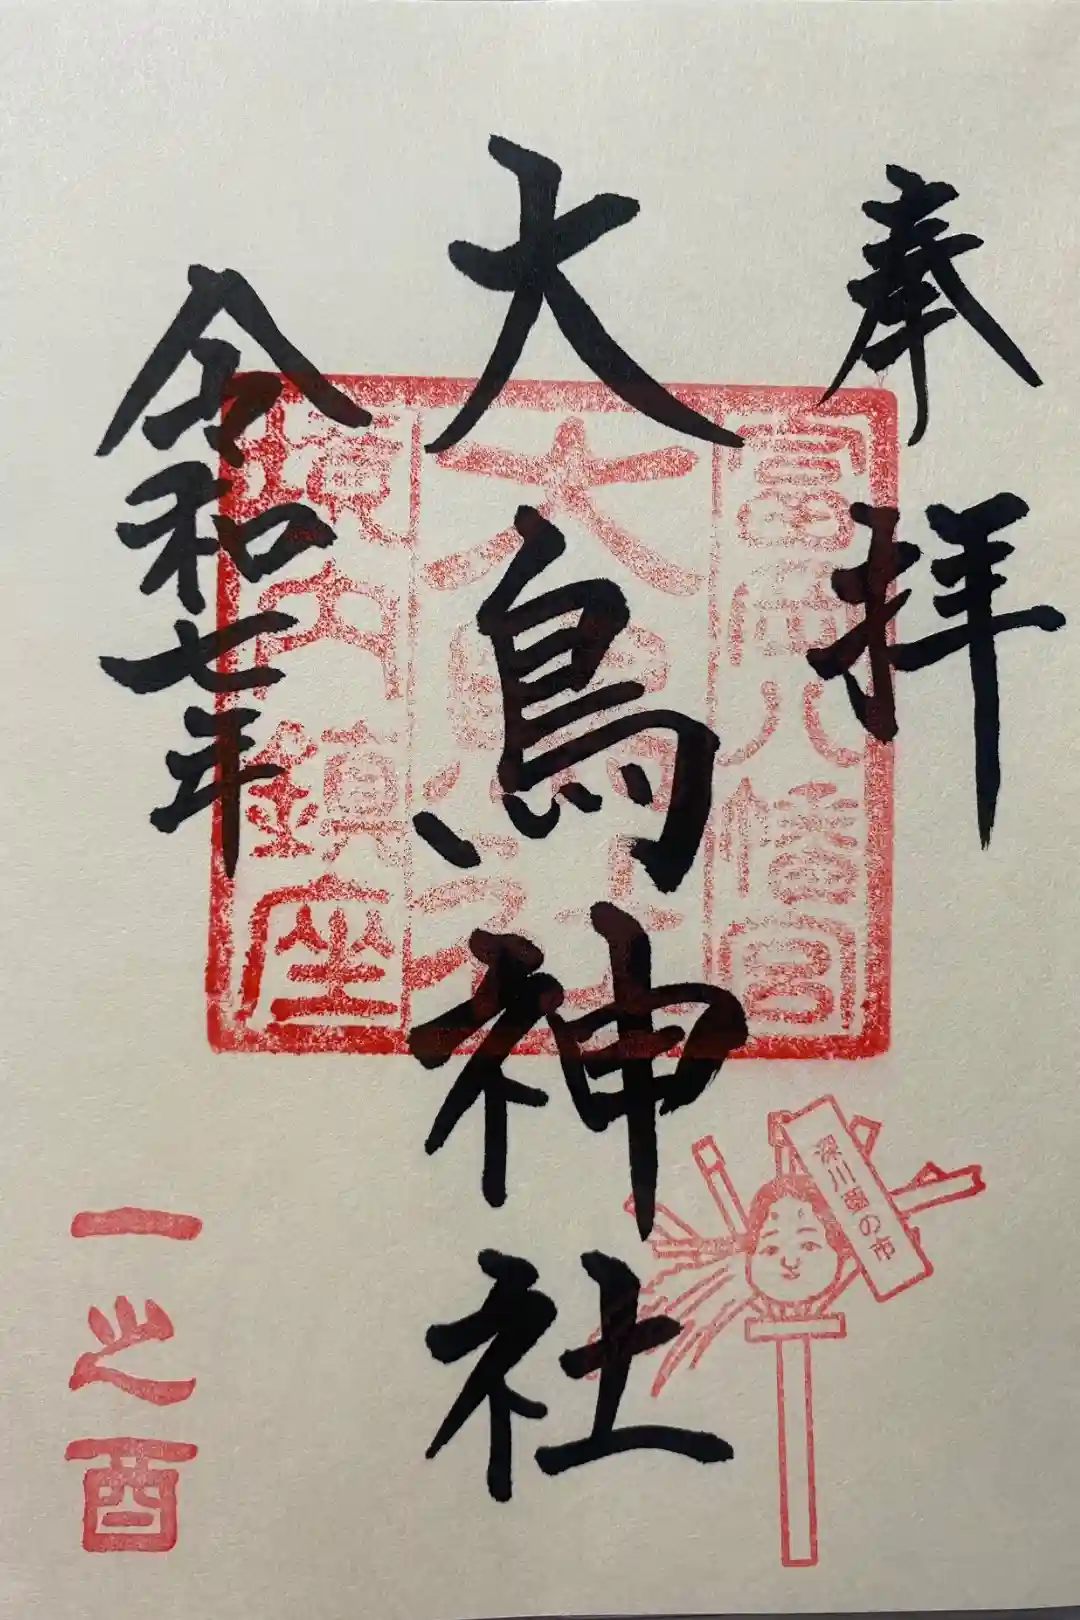 奉拝
大鳥神社
令和七年
富岡八幡宮
大鳥神社
境内鎮座
深川酉の市
一之酉